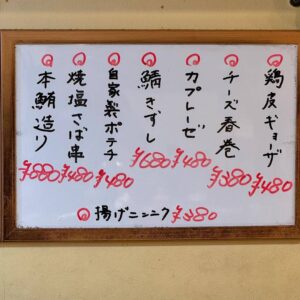 鶏皮ギョーザ ¥480
チーズ春巻 ¥380
カプレーゼ ¥480
鯖きずし ¥680
自家製ポテチ ¥480
焼塩さば串 ¥480
本鮪造り ¥880
揚げニンニク ¥380